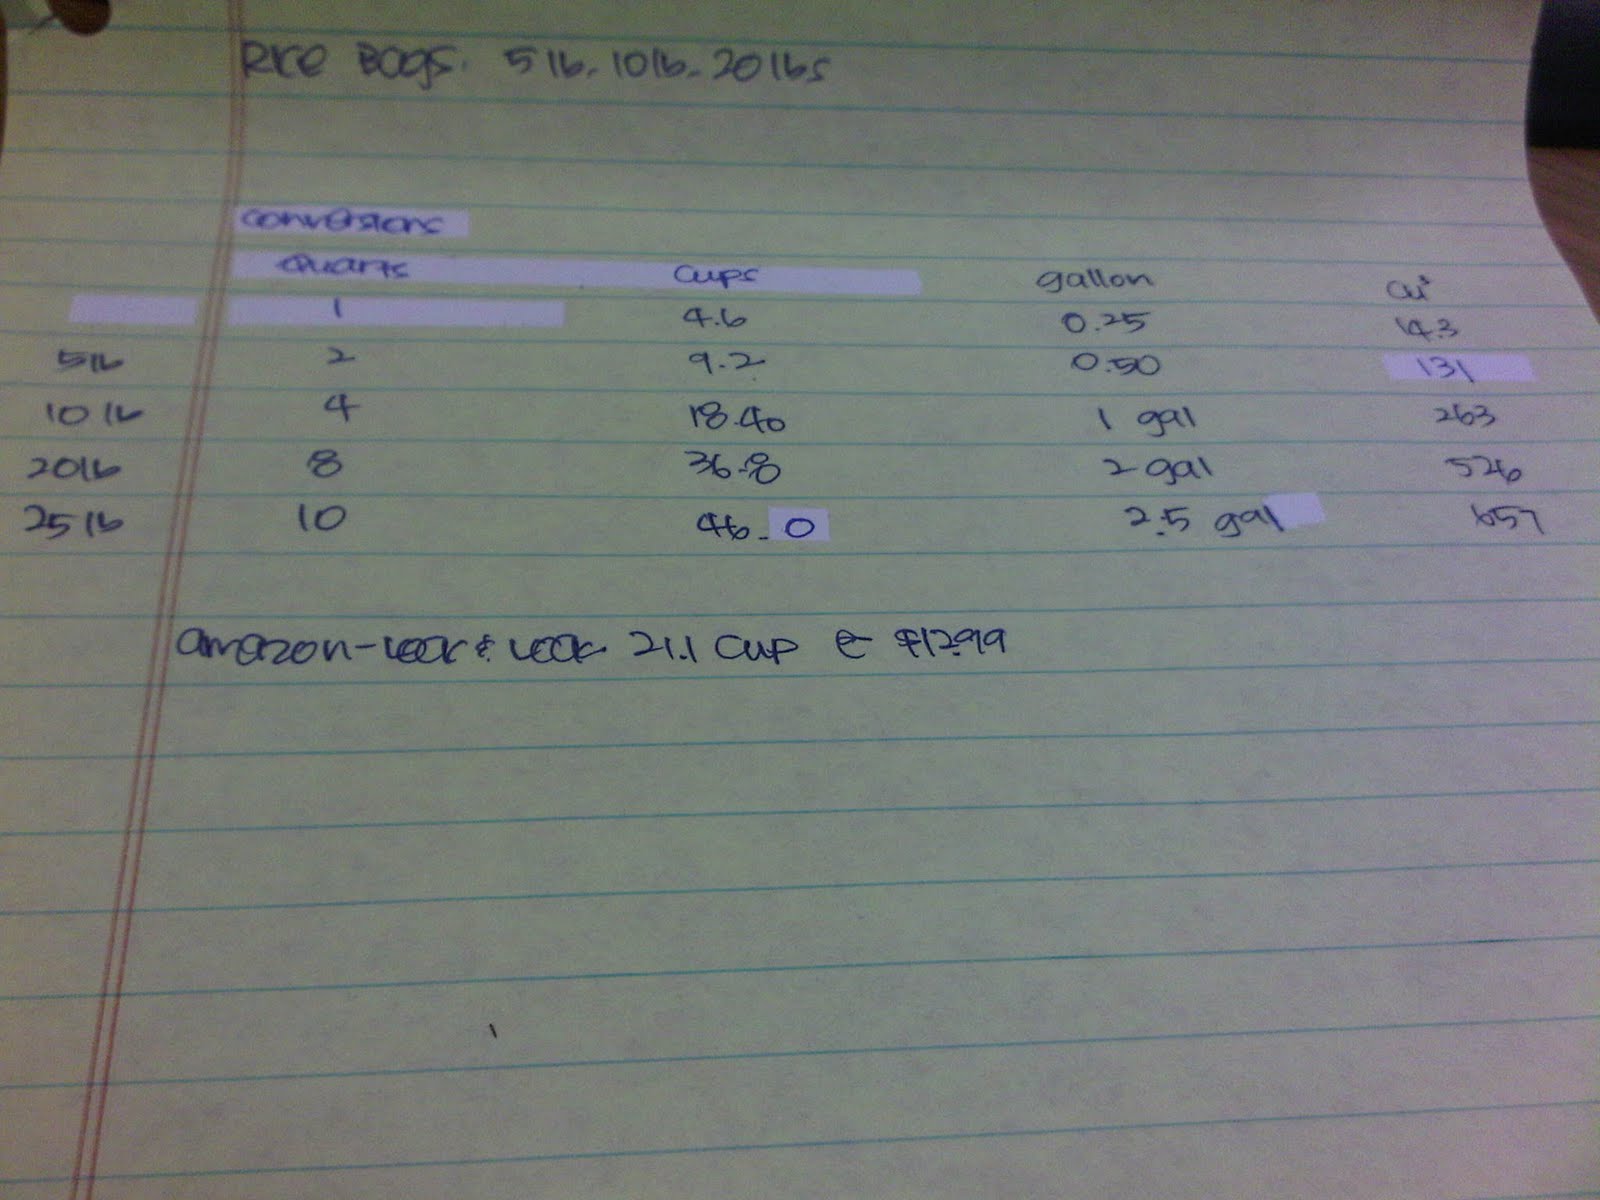 Rice Bags. 5 lb. 10 lb. 20 lbs
conversions
Quarts Cups gallon cu³
1 4.6 0.25 14.3
5 lb 2 9.2 0.50 131
10 lb 4 18.40 1 gal 263
20 lb 8 36.8 2 gal 526
25 lb 10 46.0 2.5 gal 657
amazon - Lock & Lock 21.1 cup @ $12.99